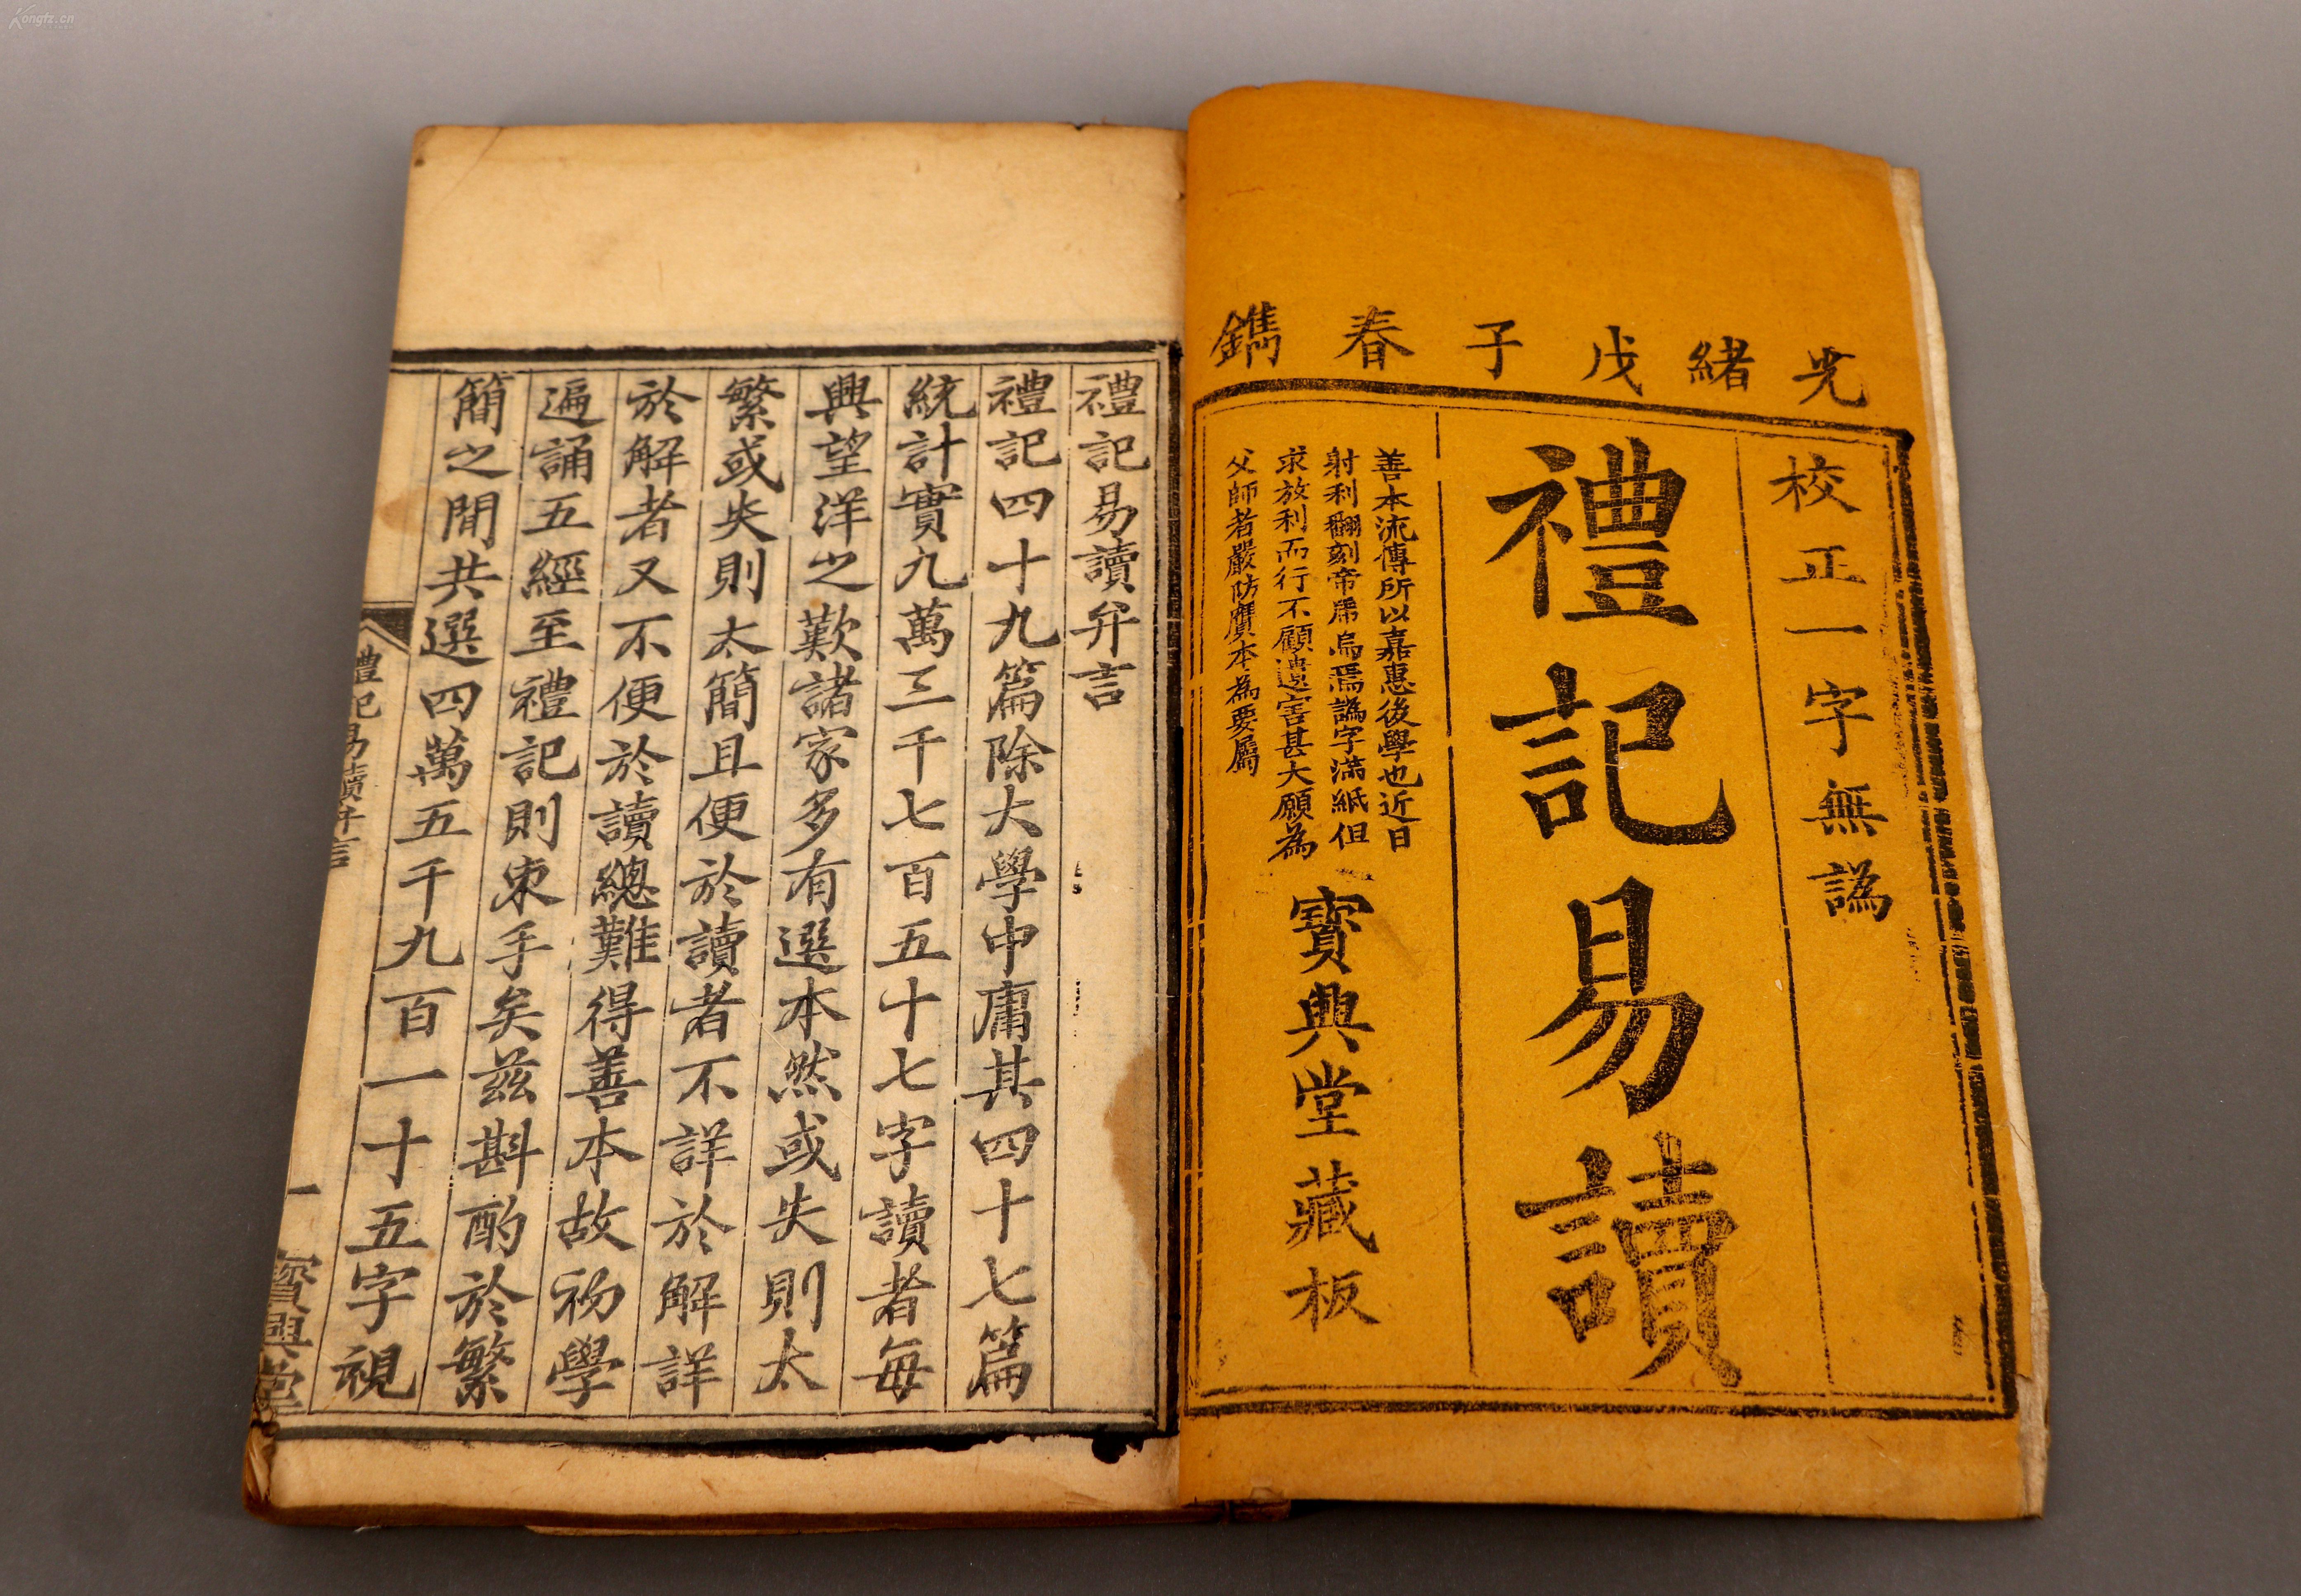 光緒戊子春鐫
校正一字無譌
禮記易讀
善本流傳所以嘉惠後學也近日
射利翻刻帝乕烏焉譌字滿紙但
求放利而行不顧遺害甚大願為
父師者嚴防贗本為要屬
寶興堂藏板
禮記易讀弁言
禮記四十九篇除大學中庸其四十七篇
統計實九萬三千七百五十七字讀者每
興望洋之歎諸家多有選本然或失則太
繁或失則太簡且便於讀者不詳於解詳
於解者又不便於讀總難得善本故初學
遍誦五經至禮記則束手矣茲斟酌於繁
簡之間共選四萬五千九百一十五字視
禮記易讀弁言
一
寶興堂
Kongfz.cn